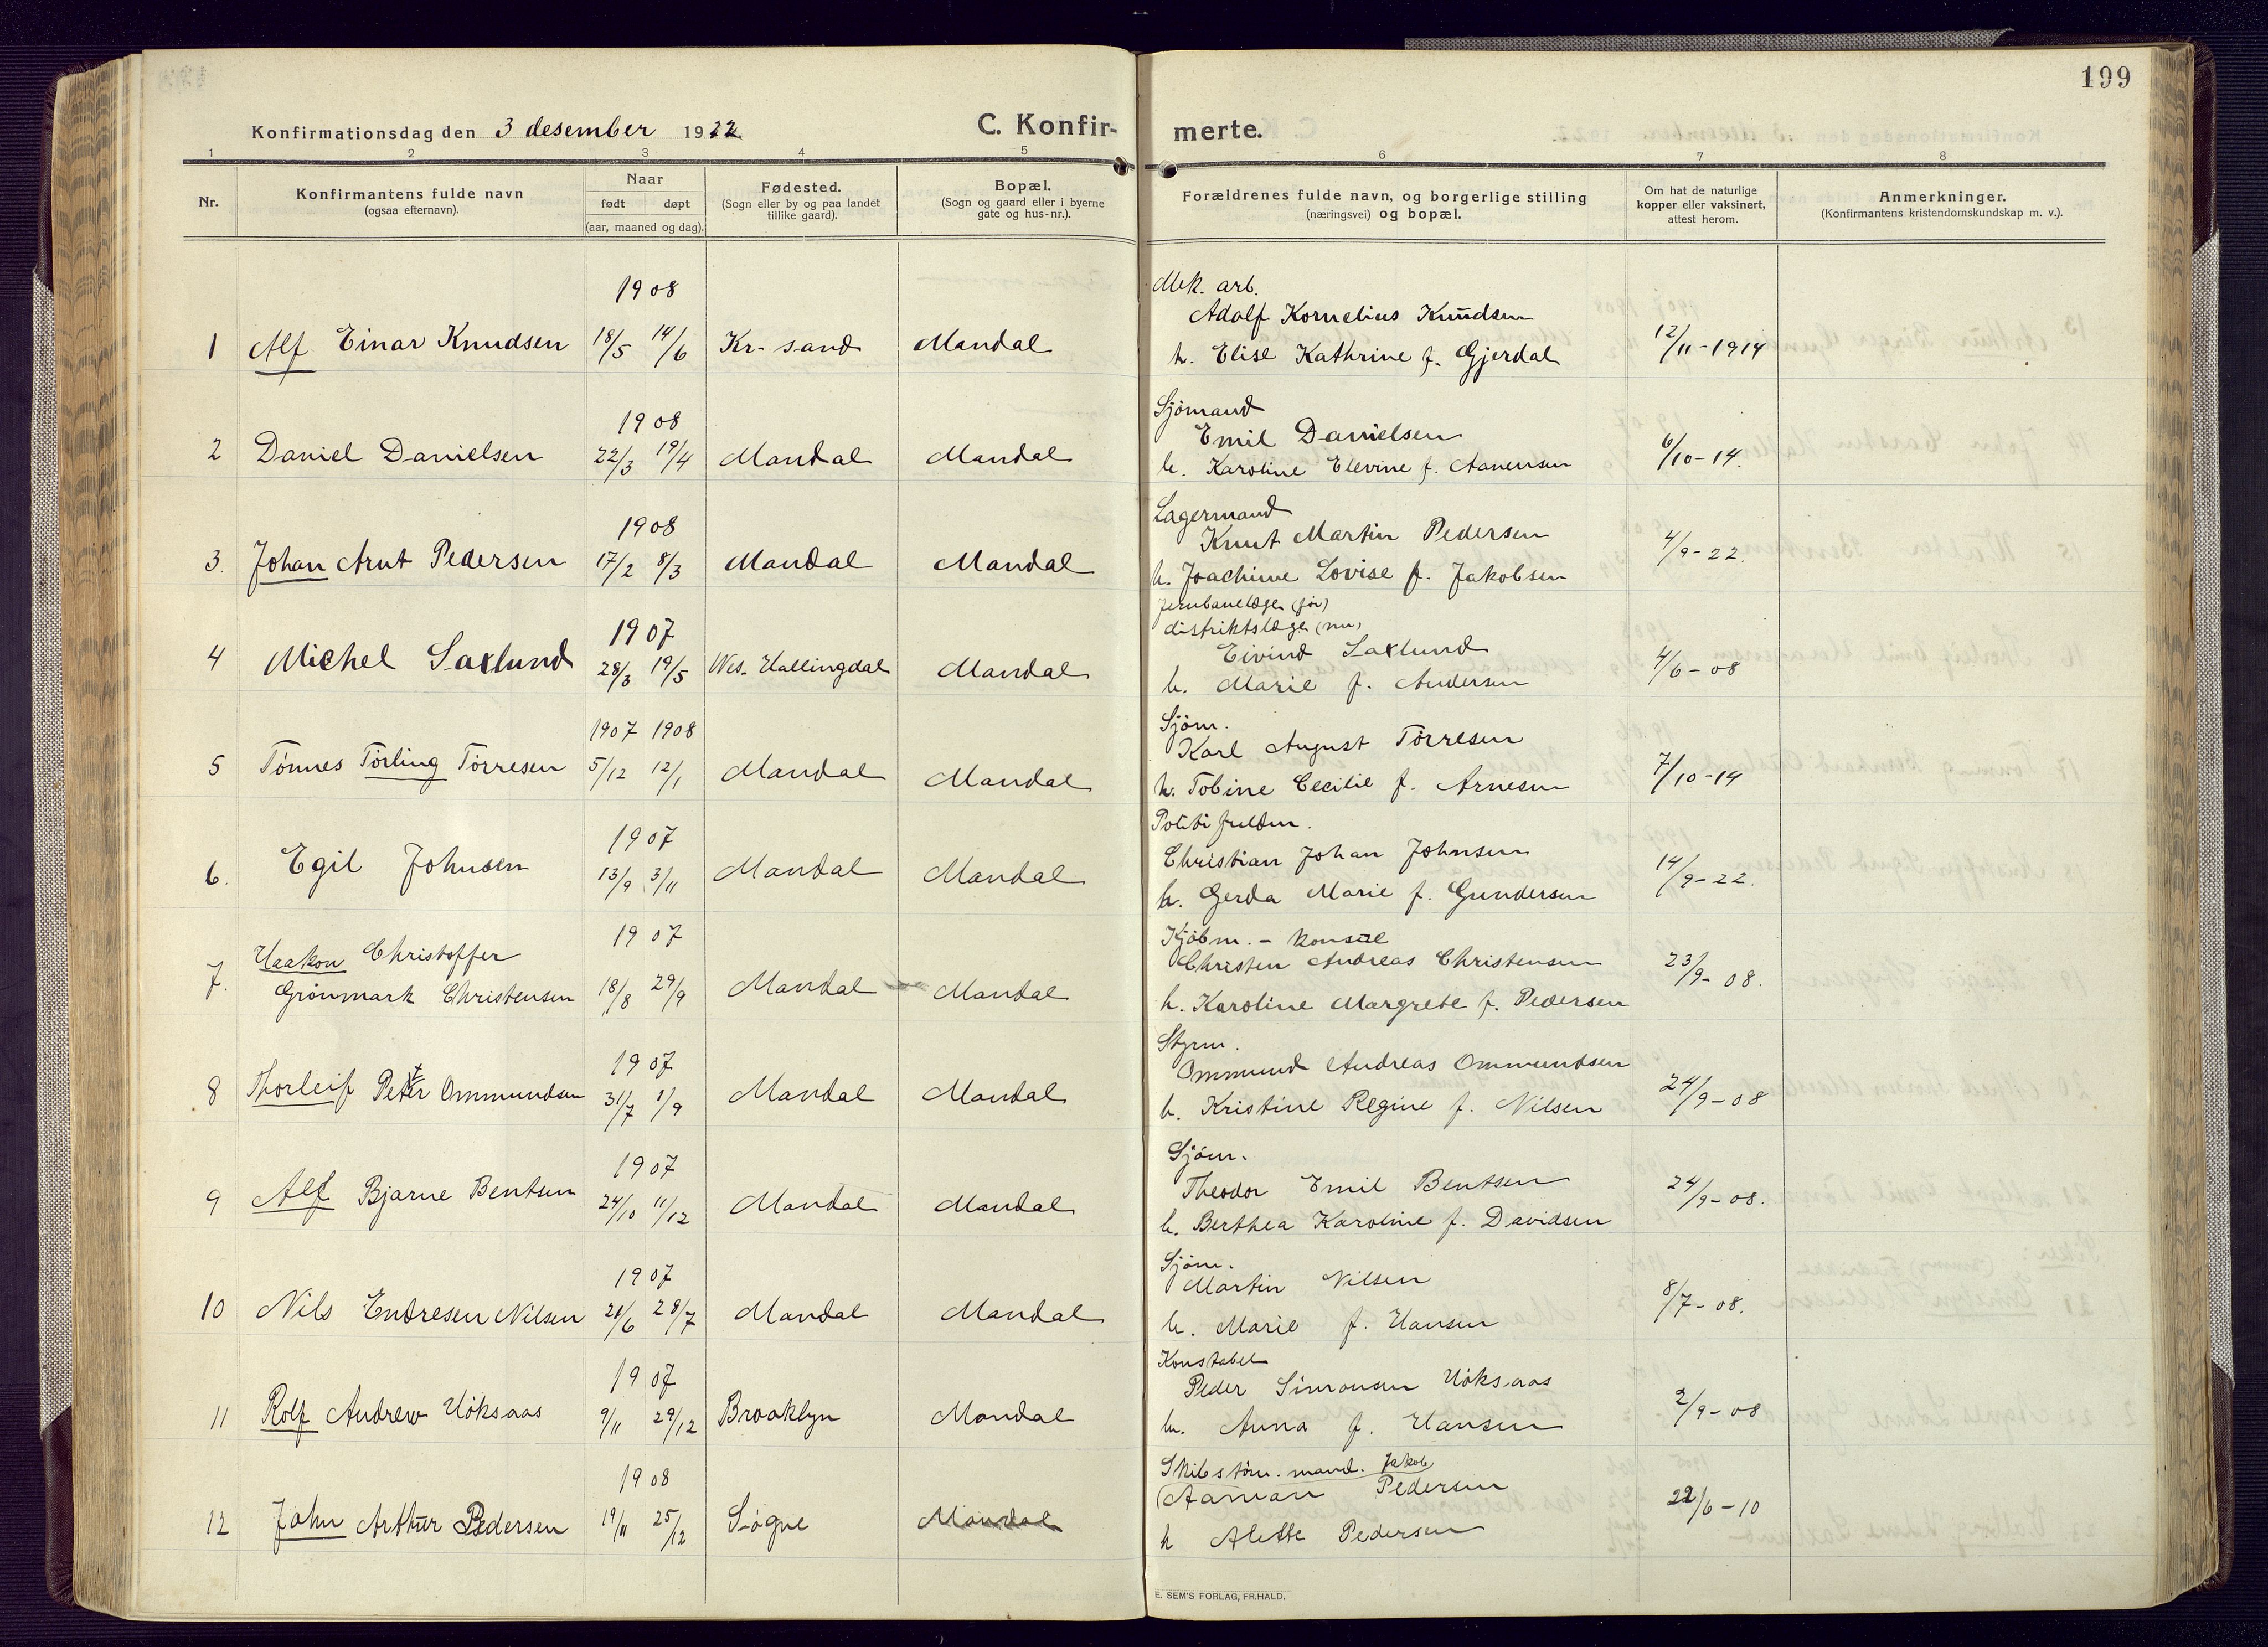 199
Konfirmationsdag den 3 desember 1922
C. Konfir-
merte.
1 2 3 4 5 6 7 8
Nr.
Konfirmantens fulde navn
(ogsaa efternavn).
Naar
født døpt
(aar, maaned og dag).
Fødested.
(Sogn eller by og paa landet
tillike gaard).
Bopæl.
(Sogn og gaard eller i byerne
gate og hus-nr.).
Forældrenes fulde navn, og borgerlige stilling
(næringsvei) og bopæl.
Om hat de naturlige
kopper eller vaksinert,
attest herom.
Anmerkninger.
(Konfirmantens kristendomskundskap m. v.).
1908
Mek. arb.
Adolf Kornelius Knudsen
1 Alf Einar Knudsen 18/5 14/6 Kr-sand Mandal
h. Elise Kathrine f. Gjerdal 12/11-1914
1908
Sjömand
Emil Danielsen
2 Daniel Danielsen 22/3 19/4 Mandal Mandal
h. Karoline Elevine f. Aanensen 6/10-14.
1908
Lagermand
Knut Martin Pedersen
3. Johan Arnt Pedersen 17/2 8/3 Mandal Mandal
h. Joachime Lovise f. Jakobsen 4/9-22.
1907
Jernbanelæge (før)
distriktslæge (nu)
Eivind Saxlund
4 Michel Saxlund 28/3 19/5 Nes. Hallingdal Mandal
h. Marie f. Andersen 4/6-08
1907 1908
Sjöm.
Karl August Törresen
5 Tönnes Törling Törresen 5/12 12/1 Mandal Mandal
h. Tobine Cecilie f. Arnesen 7/10-14
1907
Politifuldm.
Christian Johan Johnsen
6. Egil Johnsen 13/9 3/11 Mandal Mandal
h. Gerda Marie f. Gundersen 14/9-22.
1907
Kjöbm. - konsul
Christen Andreas Christensen
7. Haakon Christoffer
Grönmark Christensen 18/8 29/9 Mandal Mandal
h. Karoline Margrete f. Pedersen 23/9-08.
1907
Styrm.
Ommund Andreas Ommundsen
8 Thorleif Peter Ommundsen 31/7 1/9 Mandal Mandal
h. Kristine Regine f. Nilsen 24/9-08
1907
Sjöm.
Theodor Emil Bentsen
9 Alf Bjarne Bentsen 24/10 11/12 Mandal Mandal
h. Berthea Karoline f. Davidsen 24/9-08.
1907
Sjöm.
Martin Nilsen
10 Nils Endresen Nilsen 21/6 28/7 Mandal Mandal
h. Marie f. Hansen 8/7-08.
1907
Konstabel
Peder Simonsen Höksaas
11 Rolf Andrew Höksaas 9/11 29/12 Brooklyn Mandal
h. Anna f. Hansen 2/9-08
1908
Skibstöm. mand. Jakob
Aanan Pedersen
12 John Arthur Pedersen 19/11 25/12 Søgne Mandal
h Alette Pedersen 22/6-10
E. SEM'S FORLAG, FR.HALD.